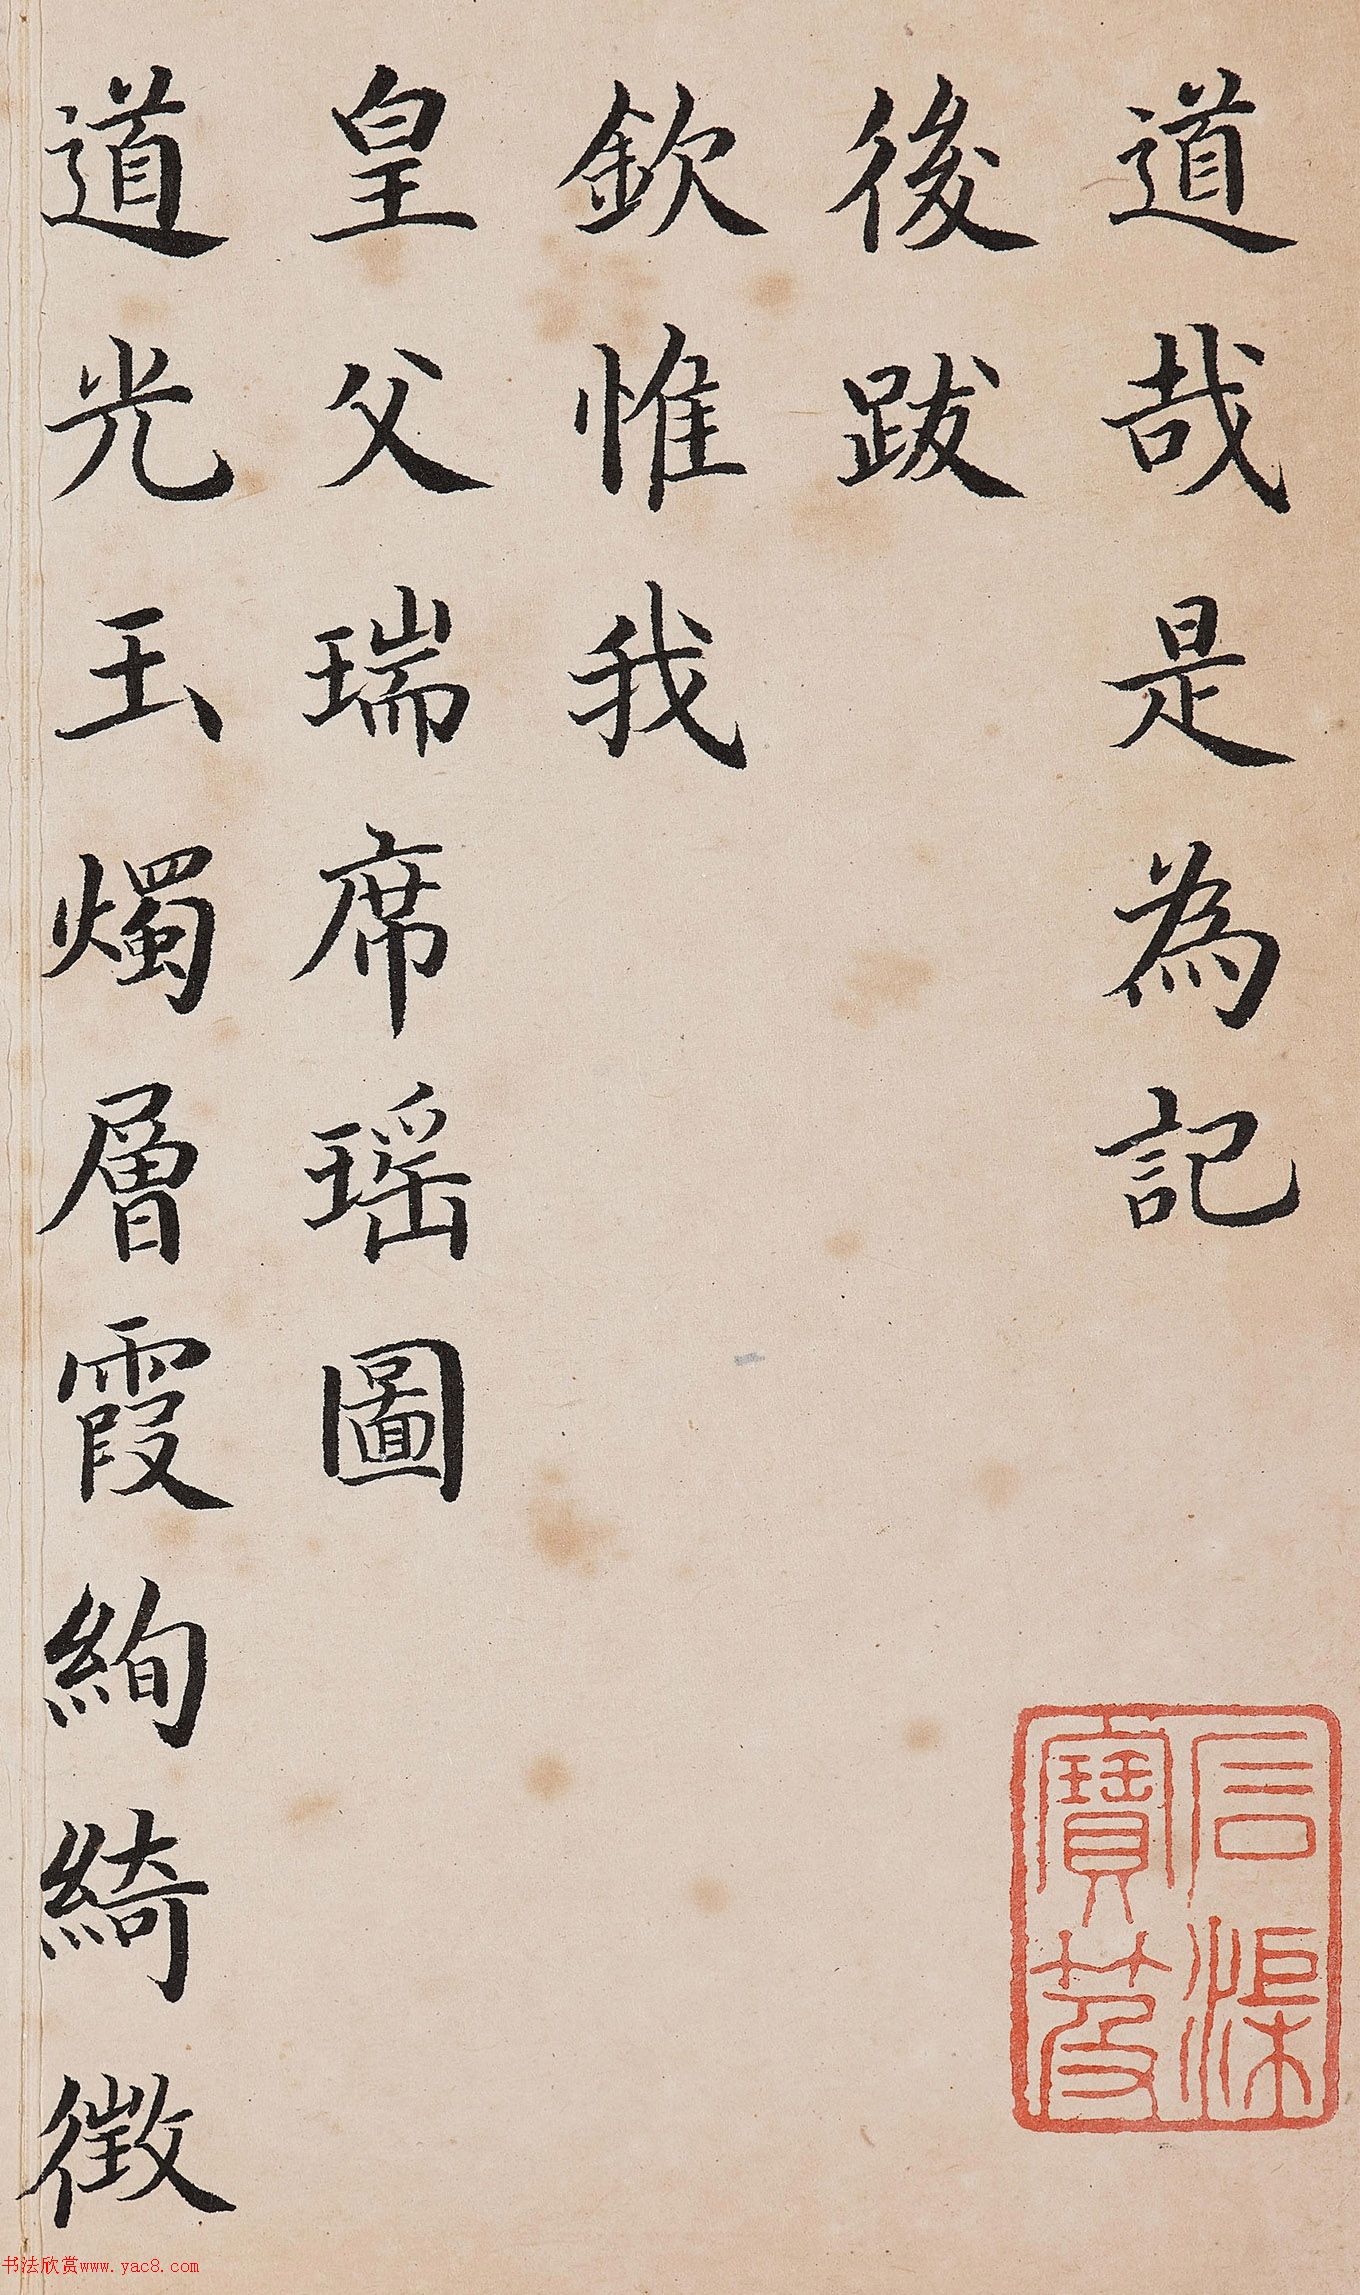 道哉是為記
後跋
欽惟我
皇父瑞席瑶圖
道光玉燭層霞絢綺徵
石渠寶笈
书法欣赏www.yac8.com